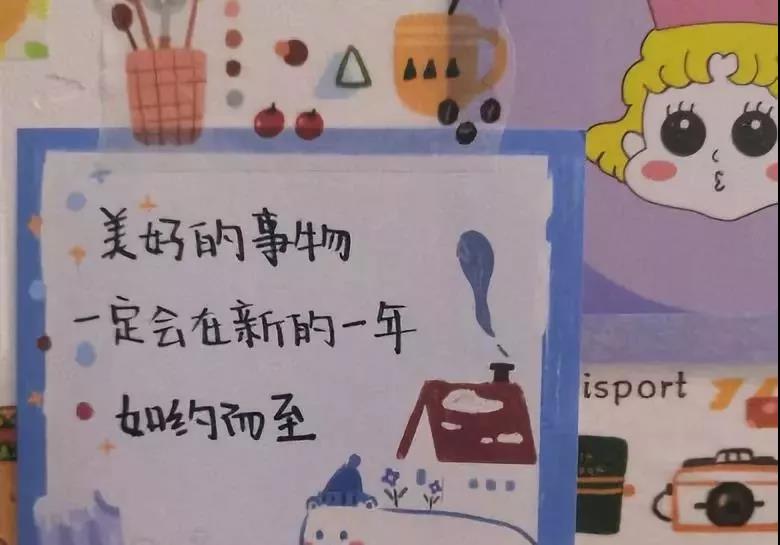 美好的事物
一定会在新的一年
如约而至
isport